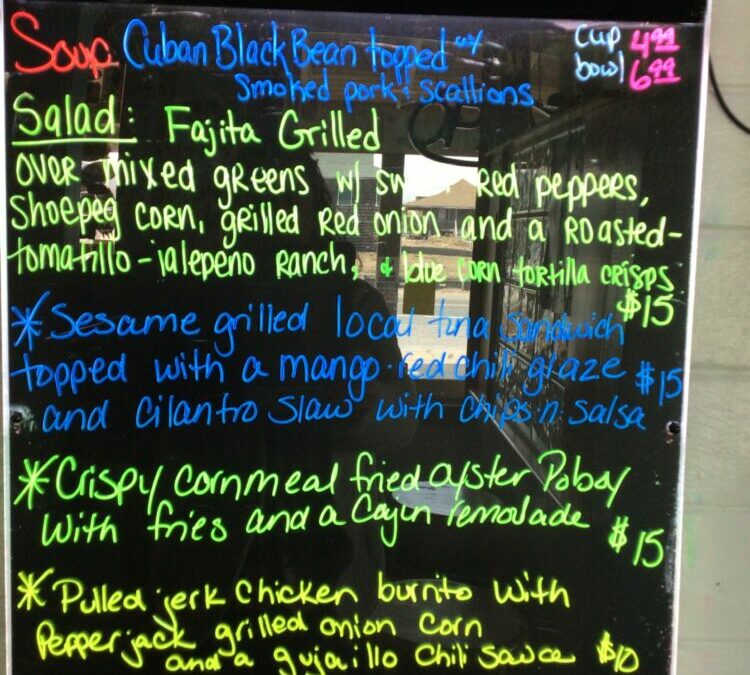 Soup Cuban Black Bean topped w/ cup 4.99
Smoked pork & scallions bowl 6.99
Salad: Fajita Grilled
over mixed greens w/ Red peppers,
Shoepeg corn, grilled Red onion and a Roasted-
tomatillo-jalepeno Ranch, & blue corn tortilla crisps
$15
*Sesame grilled local tuna sandwich
topped with a mango-red chili glaze $15
and cilantro slaw with chips n salsa
*Crispy cornmeal fried oyster Poboy
with fries and a Cajun remolade $15
*Pulled jerk chicken burrito with
Pepperjack grilled onion corn
and a gujaillo chili sauce $10